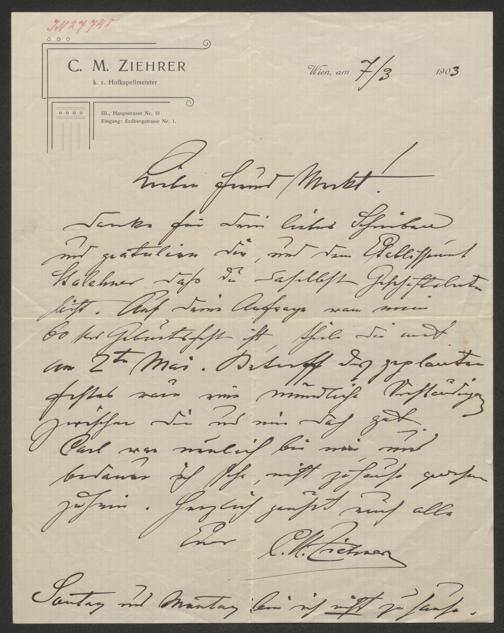 C. M. ZIEHRER
k. k. Hofkapellmeister
III., Hauptstrasse Nr.
Eingang: Erdbergstrasse Nr. 1.
Wien, am 7/3 1903
Lieber Freund !
danke für dein liebes Schreiben
und gratuliere dir, und dem Etablissement
daß du daselbst Geschäftsleiter
bist. Auf deine Anfrage wann mein
60ster Geburtsfest ist, theile dir mit
am 2ten Mai. Betreff des geplanten
Festes wäre eine mündliche Verständigung
zwischen dir und mir doch gut.
Carl war neulich bei mir, und
bedaure ich sehr, nicht zuhause gewesen
zu sein. Herzlich grüßt euch alle
Euer C. M. Ziehrer
Sontag und Montag bin ich nicht zuhause.